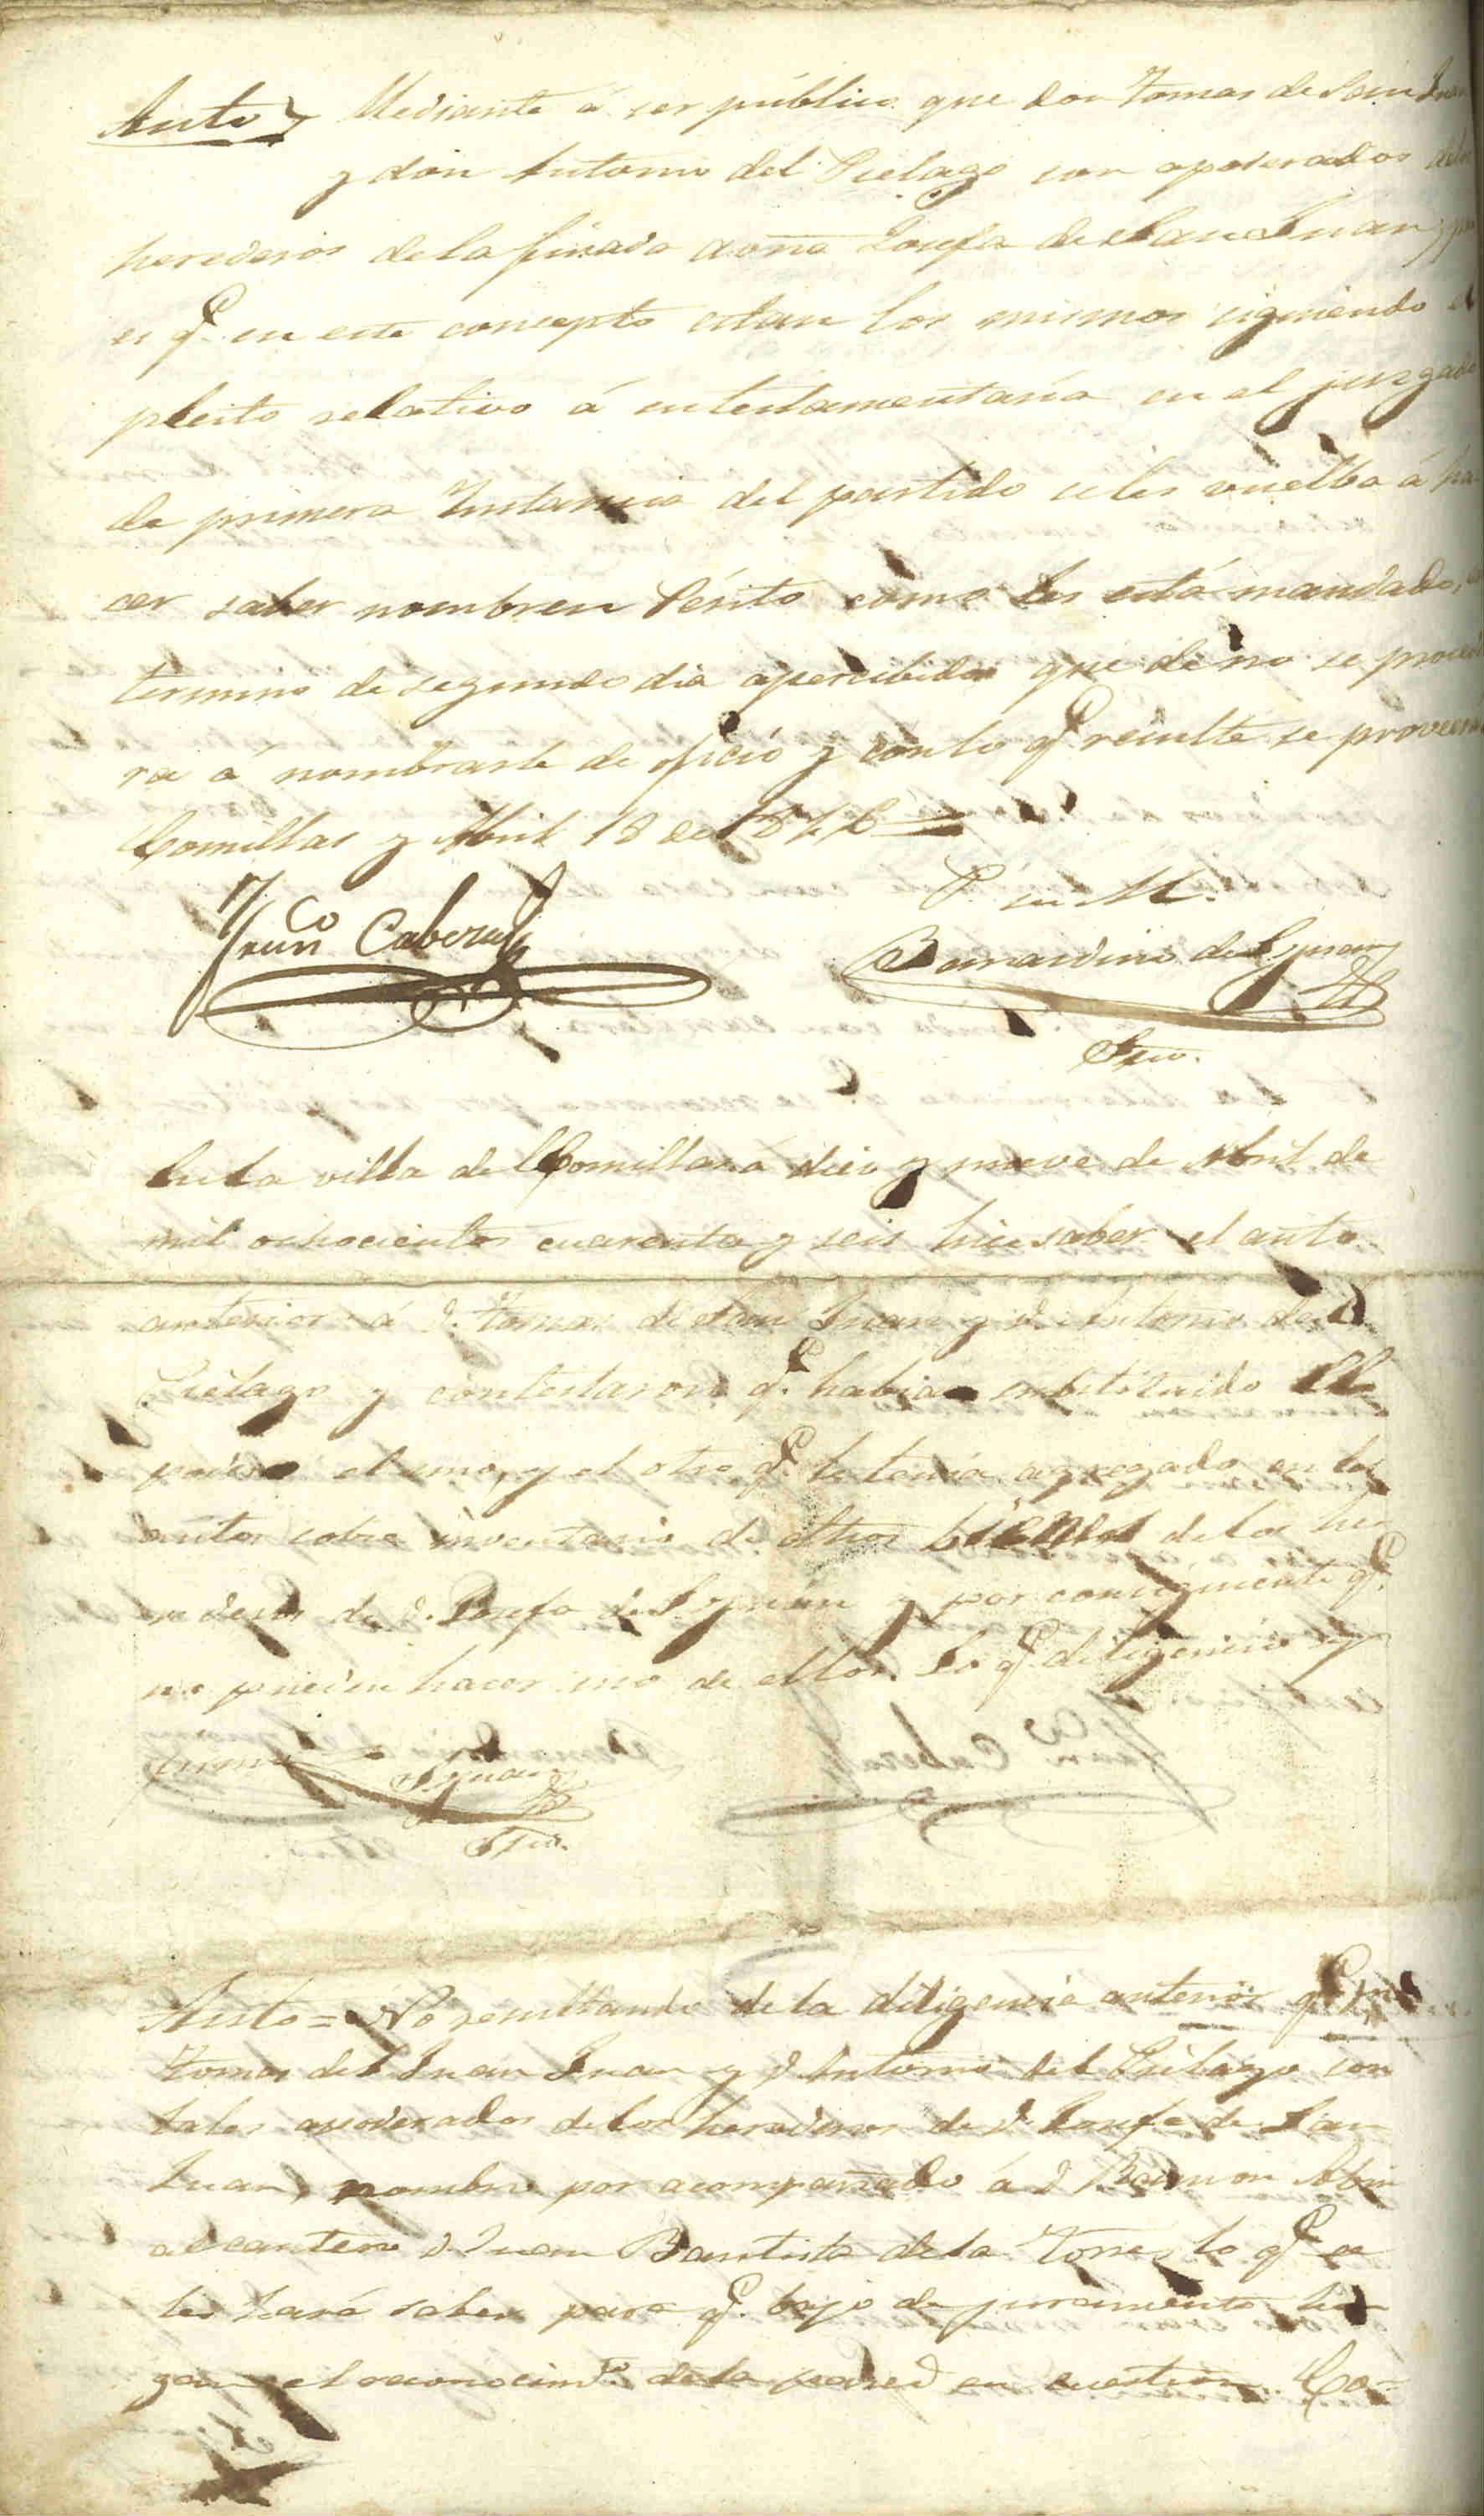 Auto Mediante á ser público que don Tomas de San Juan
y don Antonio del Pielago son apoderados de los
herederos de la finada doña Josefa de San Juan y
es q.e en este concepto estan los mismos siguiendo el
pleito relativo á intestamentaría en el juzgado
de primera Instancia del partido se les vuelba á ha-
cer saber nombren Périto como les está mandado,
termino de segundo dia apercibidos que de no se procede
ra á nombrarle de oficio y con lo q.e resulte se proveera
Comillas y Abril 18 de 1846
Fran.co Caberas
P. su M.
Bernardino de Ygnan
Srio.
En la villa de Comillas á diez y nueve de Abril de
mil ochocientos cuarenta y seis hice saber el auto
anterior á d. Tomas de San Juan y d. Antonio del
Pielago y contestaron q.e habia substituido el
poder el uno, y el otro q.e le tenia agregado en los
autos sobre inventario de otros bienes de los he-
rederos de d. Josefa de S. Juan y por consiguiente q.e
no pueden hacer uso de ellos. Lo q.e diligencio y
firmo
Srio.
Auto = No resultando de la diligencia anterior q.e
Tomas de S Juan Juan y d Antonio del Pielago son
tales apoderados de los herederos de d. Josefa de San
Juan, nombro por acompañado á d Ramon
al cantero d. Juan Bautista de la Torre, lo q.e se
les hará saber para q.e bajo de juramento ha-
gan el reconocim.to de la pared en cuestion. Co-